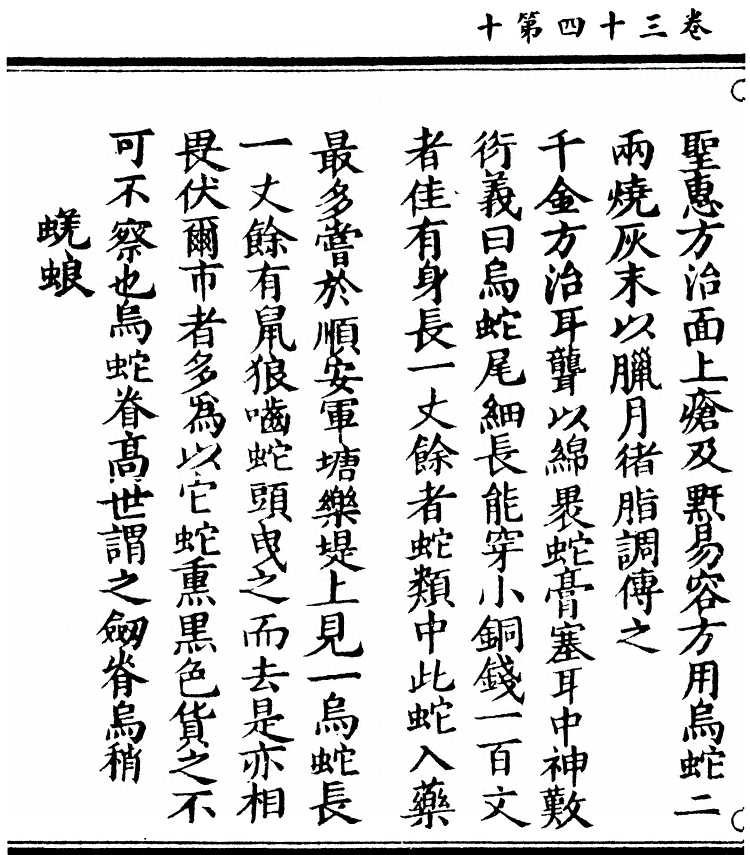 卷三十四第十
聖惠方治面上瘡及䵟易容方用烏蛇二
兩燒灰末以臘月猪脂調傅之
千金方治耳聾以綿褁蛇膏塞耳中神數
衍義曰烏蛇尾細長能穿小銅錢一百文
者佳有身長一丈餘者蛇類中此蛇入藥
最多嘗於順安軍塘樂堤上見一烏蛇長
一丈餘有鼠狼嚙蛇頭曳之而去是亦相
畏伏爾市者多為以它蛇熏黒色貨之不
可不察也烏蛇脊高世謂之劒脊烏稍
蜣蜋